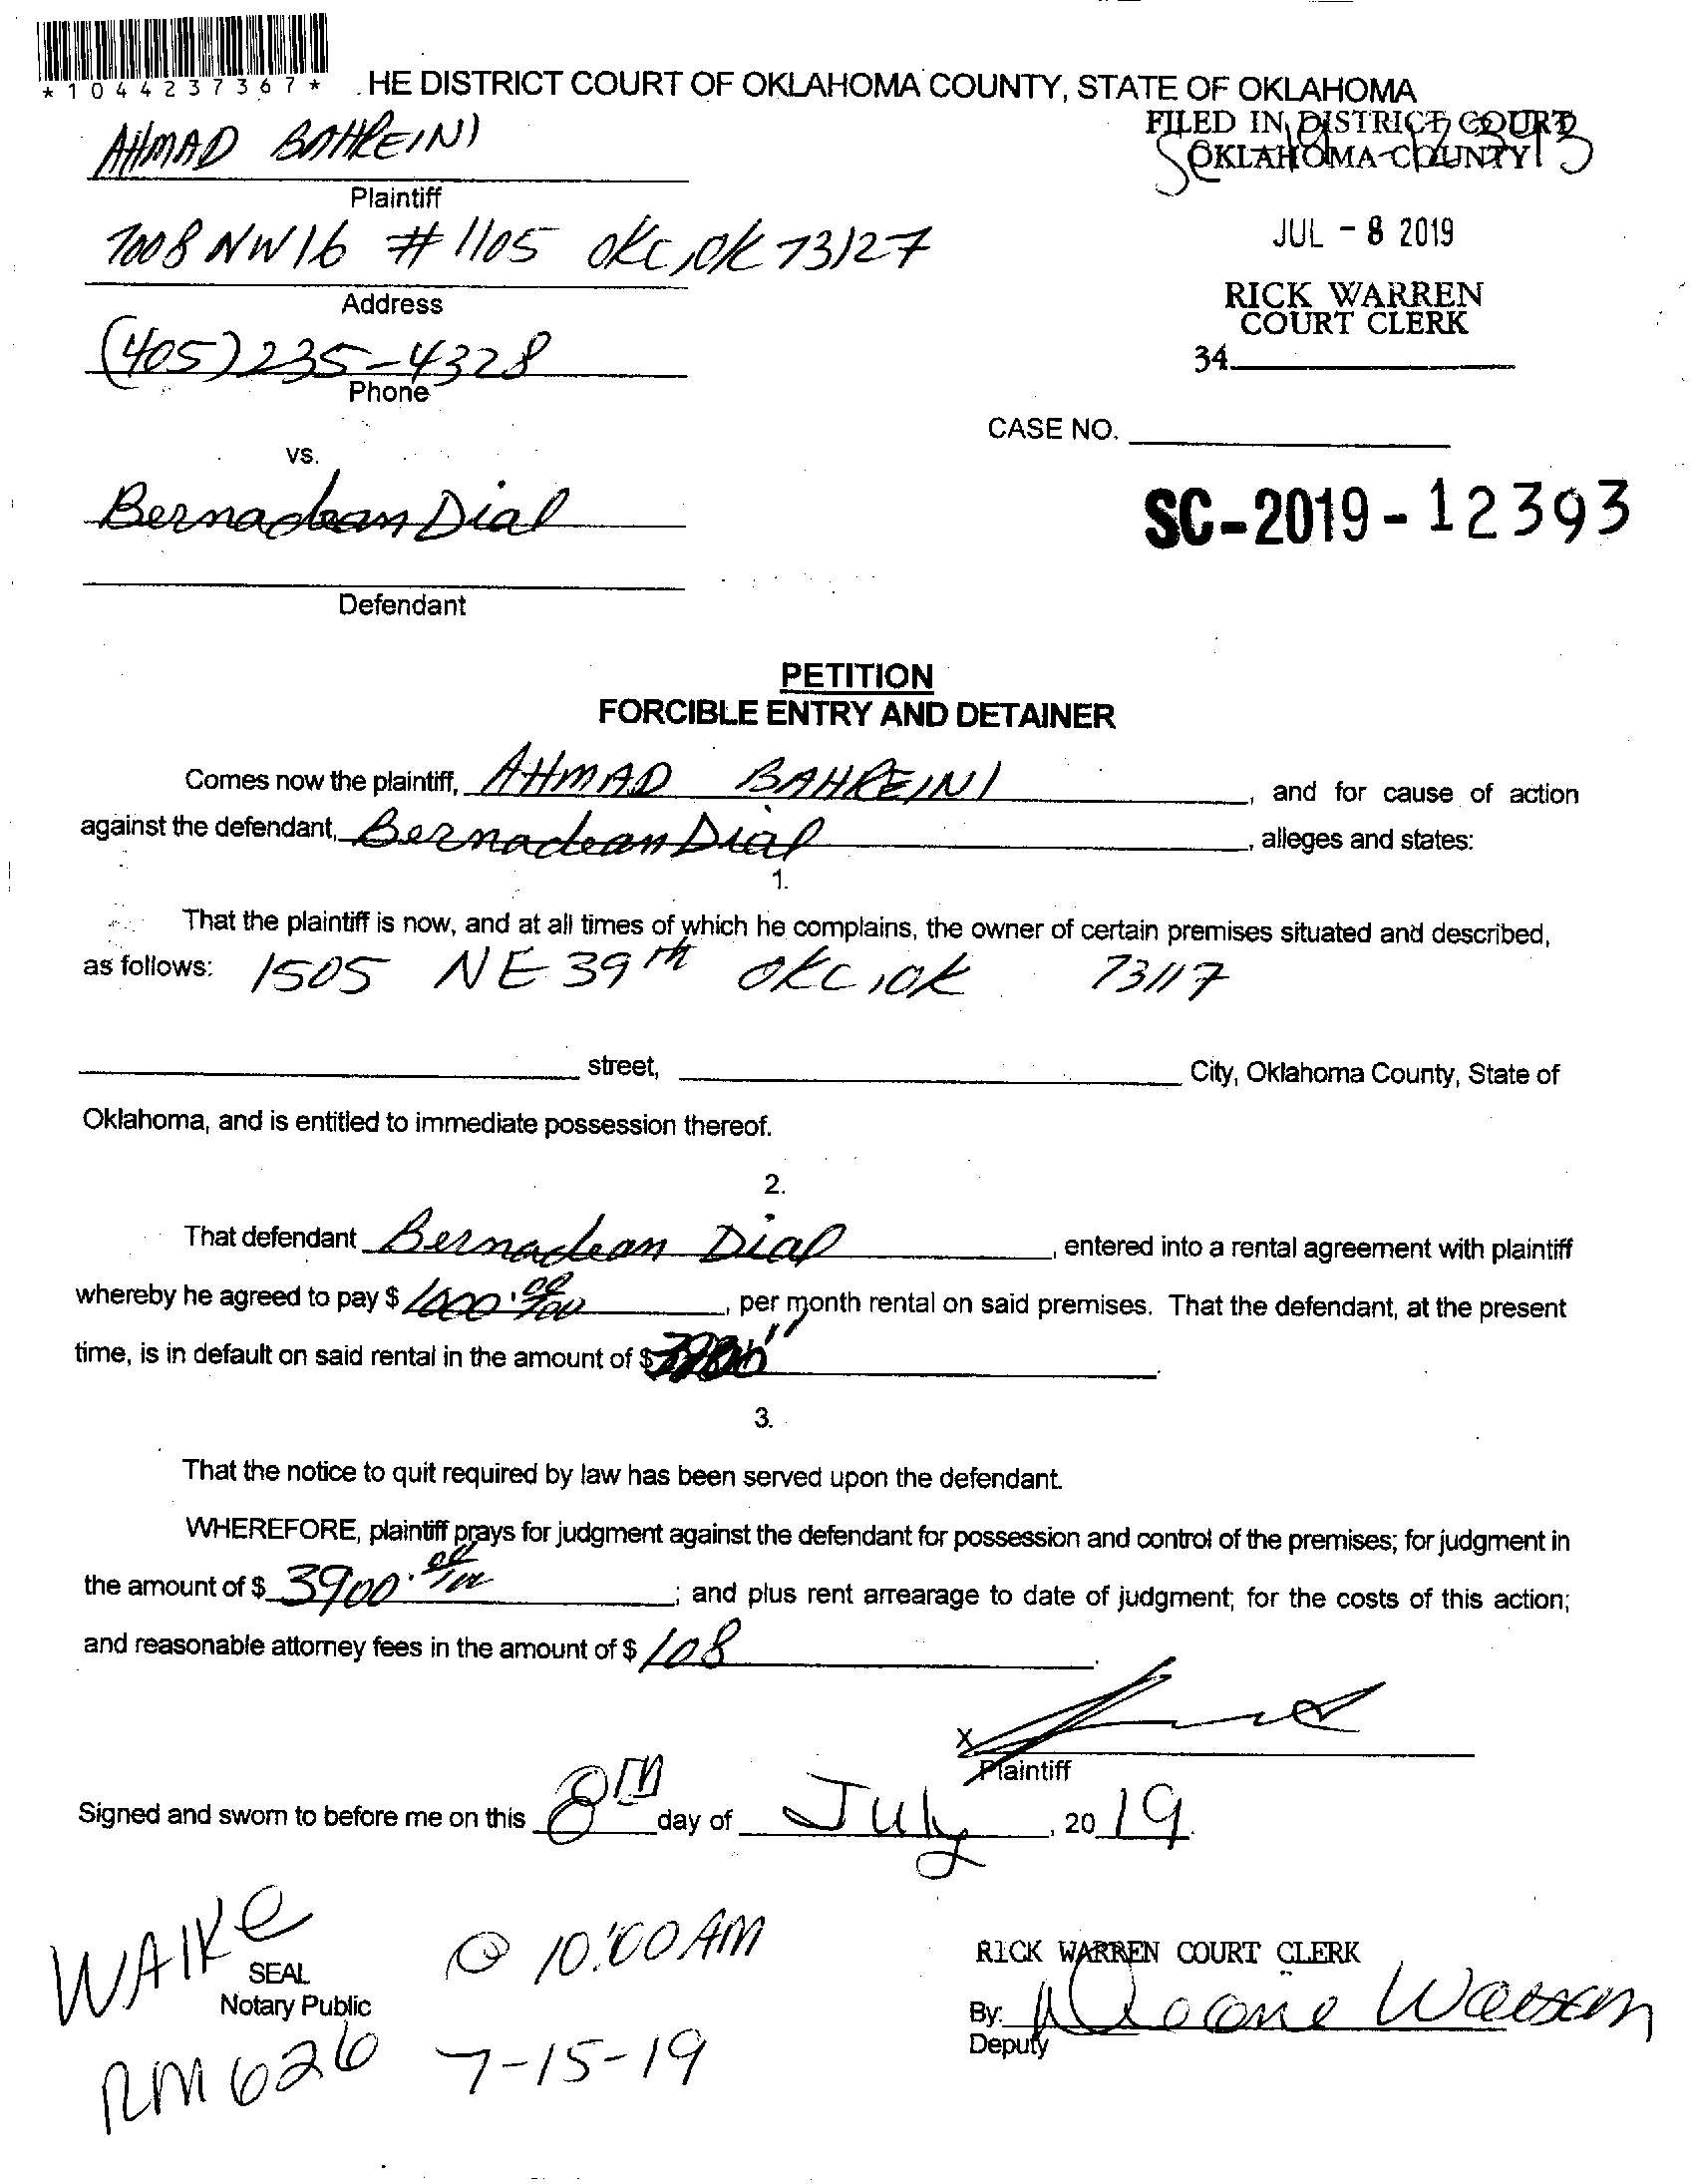 *1044237367*
HE DISTRICT COURT OF OKLAHOMA COUNTY, STATE OF OKLAHOMA
FILED IN DISTRICT COURT
OKLAHOMA COUNTY
SC-19-12393
AHMAD BAHREINI
Plaintiff
7008 NW 16 #1105 OKC, OK 73127
JUL - 8 2019
Address
RICK WARREN
COURT CLERK
(405) 235-4328
34
Phone
CASE NO.
vs.
Bernadean Dial
SC-2019-12393
Defendant
PETITION
FORCIBLE ENTRY AND DETAINER
Comes now the plaintiff, AHMAD BAHREINI, and for cause of action
against the defendant, Bernadean Dial, alleges and states:
1.
That the plaintiff is now, and at all times of which he complains, the owner of certain premises situated and described,
as follows: 1505 NE 39th OKC, OK 73117
street, City, Oklahoma County, State of
Oklahoma, and is entitled to immediate possession thereof.
2.
That defendant Bernadean Dial, entered into a rental agreement with plaintiff
whereby he agreed to pay $ 1000.00/100, per month rental on said premises. That the defendant, at the present
time, is in default on said rental in the amount of $
3.
That the notice to quit required by law has been served upon the defendant.
WHEREFORE, plaintiff prays for judgment against the defendant for possession and control of the premises; for judgment in
the amount of $ 3900.00/100; and plus rent arrearage to date of judgment; for the costs of this action;
and reasonable attorney fees in the amount of $ 108.
X
Plaintiff
Signed and sworn to before me on this 8th day of July, 2019
WAIKE @ 10:00 AM
SEAL
RICK WARREN COURT CLERK
Notary Public
By:
Deputy
RM 626 7-15-19